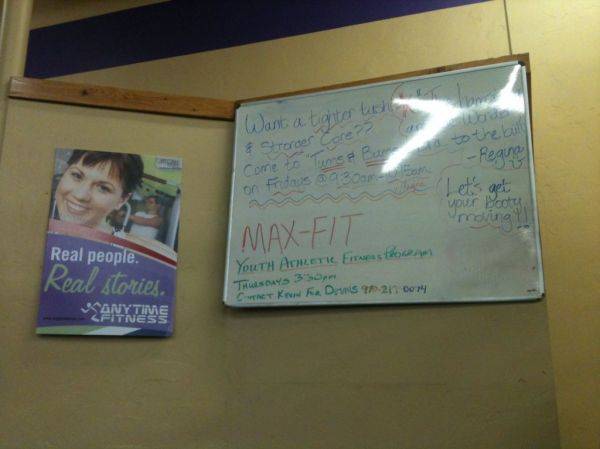 Want a tighter tush
& Stronger Core??
Come to "Tums &
on Fridays @ 9:30am
to the bill!
- Regina
Let's get
your booty
moving!!
MAX-FIT
YOUTH ATHLETIC FITNESS PROGRAM
THURSDAYS 3:30pm
CONTACT KEVIN FOR DETAILS
Real people.
Real stories.
ANYTIME
FITNESS